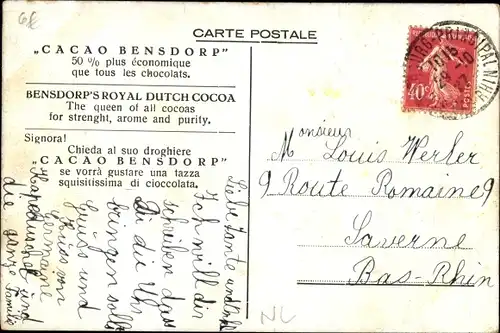 6€
CARTE POSTALE
„CACAO BENSDORP"
50 % plus économique
que tous les chocolats.
BENSDORP'S ROYAL DUTCH COCOA
The queen of all cocoas
for strenght, arome and purity.
Signora!
Chieda al suo droghiere
„CACAO BENSDORP"
se vorrà gustare una tazza
squisitissima di cioccolata.
Liebe Tante und
Ich will dir
schreiben das
Du die Uhr
bringen sollst
Gruss und
Kuss von
Germaine
und
die ganze Familie
40c
POSTES
PRINCIPAL
Monsieur
M Louis Werler
9 Route Romaine 9
Saverne
Bas-Rhin
NL